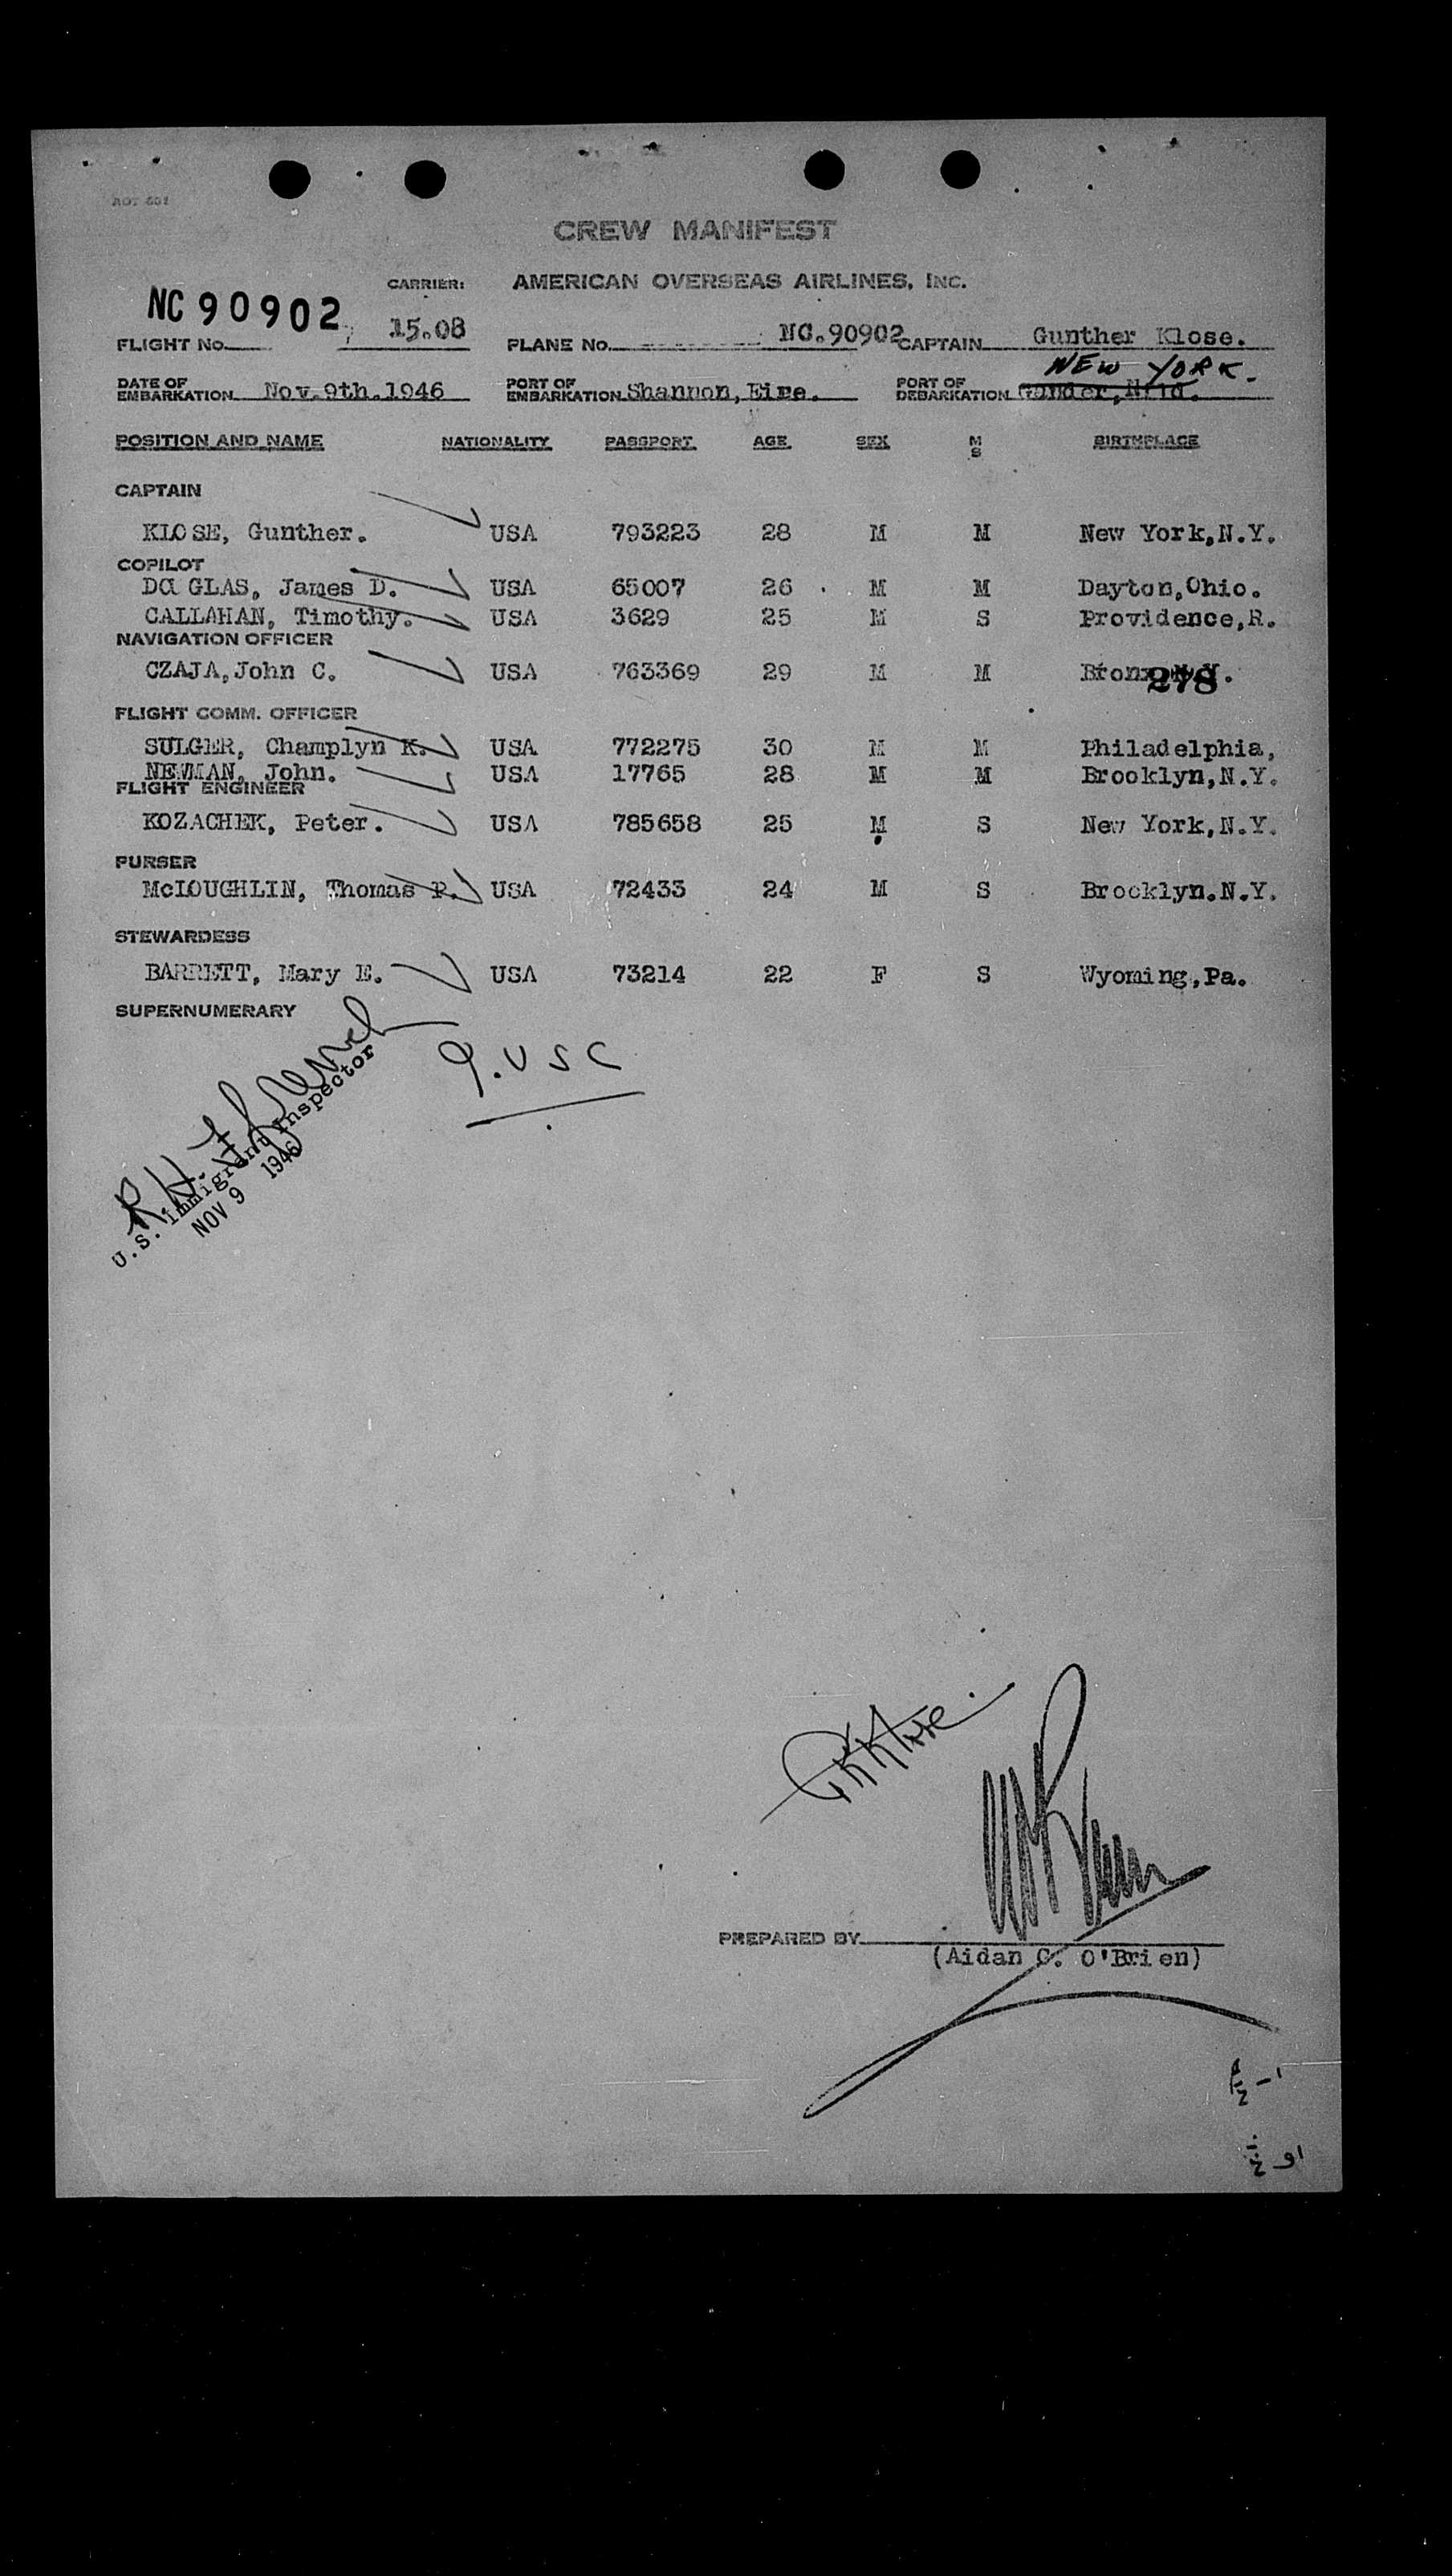 AOT 601
CREW MANIFEST
CARRIER: AMERICAN OVERSEAS AIRLINES, INC.
NC 90902
FLIGHT No. 15.08 PLANE No. NC.90902 CAPTAIN Gunther Klose.
NEW YORK.
DATE OF EMBARKATION Nov.9th.1946 PORT OF EMBARKATION Shannon,Eire. PORT OF DEBARKATION Gander,Nfld.
POSITION AND NAME NATIONALITY PASSPORT AGE SEX M S BIRTHPLACE
CAPTAIN
KLOSE, Gunther. USA 793223 28 M M New York,N.Y.
COPILOT
DOUGLAS, James D. USA 65007 26 M M Dayton,Ohio.
CALLAHAN, Timothy. USA 3629 25 M S Providence,R.
NAVIGATION OFFICER
CZAJA,John C. USA 763369 29 M M Bronx,N.Y.
278
FLIGHT COMM. OFFICER
SULGER, Champlyn K. USA 772275 30 M M Philadelphia,
NEWMAN, John. USA 17765 28 M M Brooklyn,N.Y.
FLIGHT ENGINEER
KOZACHEK, Peter. USA 785658 25 M S New York,N.Y.
PURSER
McLOUGHLIN, Thomas P. USA 72433 24 M S Brooklyn.N.Y.
STEWARDESS
BARRETT, Mary E. USA 73214 22 F S Wyoming,Pa.
SUPERNUMERARY
9. USC
R.H.
U.S. Immigrant Inspector
NOV 9 1946
PREPARED BY
(Aidan C. O'Brien)